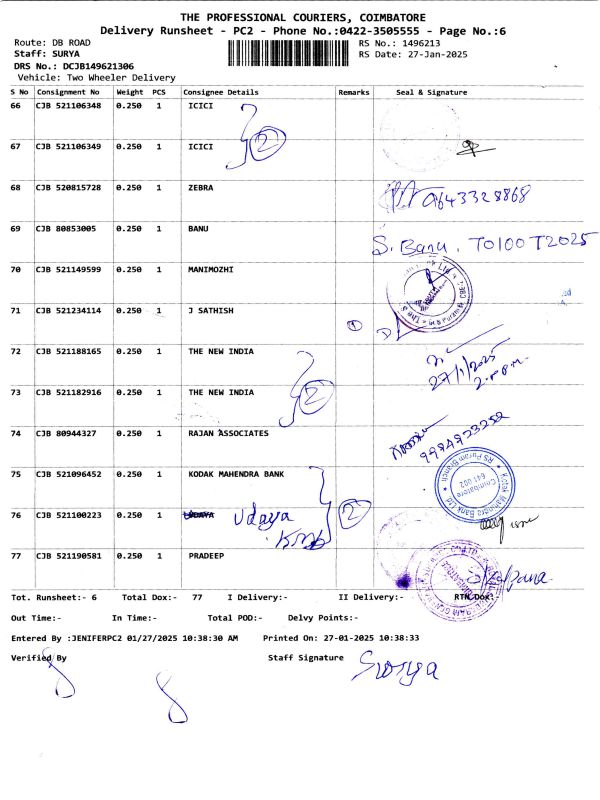 THE PROFESSIONAL COURIERS, COIMBATORE
Delivery Runsheet - PC2 - Phone No.:0422-3505555 - Page No.:6
Route: DB ROAD RS No.: 1496213
Staff: SURYA RS Date: 27-Jan-2025
DRS No.: DCJB149621306
Vehicle: Two Wheeler Delivery
S No Consignment No Weight PCS Consignee Details Remarks Seal & Signature
66 CJB 521106348 0.250 1 ICICI
2
67 CJB 521106349 0.250 1 ICICI
68 CJB 520815728 0.250 1 ZEBRA 9643328868
69 CJB 80853005 0.250 1 BANU S. Banu. TO100T2025
70 CJB 521149599 0.250 1 MANIMOZHI
71 CJB 521234114 0.250 1 J SATHISH
1
72 CJB 521188165 0.250 1 THE NEW INDIA
27/1/2025
73 CJB 521182916 0.250 1 THE NEW INDIA 2
74 CJB 80944327 0.250 1 RAJAN ASSOCIATES 9994923252
75 CJB 521096452 0.250 1 KODAK MAHENDRA BANK
Kotak Mahindra Bank Ltd RS Puram Branch Coimbatore 641 002
76 CJB 521100223 0.250 1 UDAYA Udaya 2
KMB
77 CJB 521190581 0.250 1 PRADEEP
Tot. Runsheet:- 6 Total Dox:- 77 I Delivery:- II Delivery:- RTN Dox:-
Out Time:- In Time:- Total POD:- Delvy Points:-
Entered By :JENIFERPC2 01/27/2025 10:38:30 AM Printed On: 27-01-2025 10:38:33
Verified By Staff Signature Surya